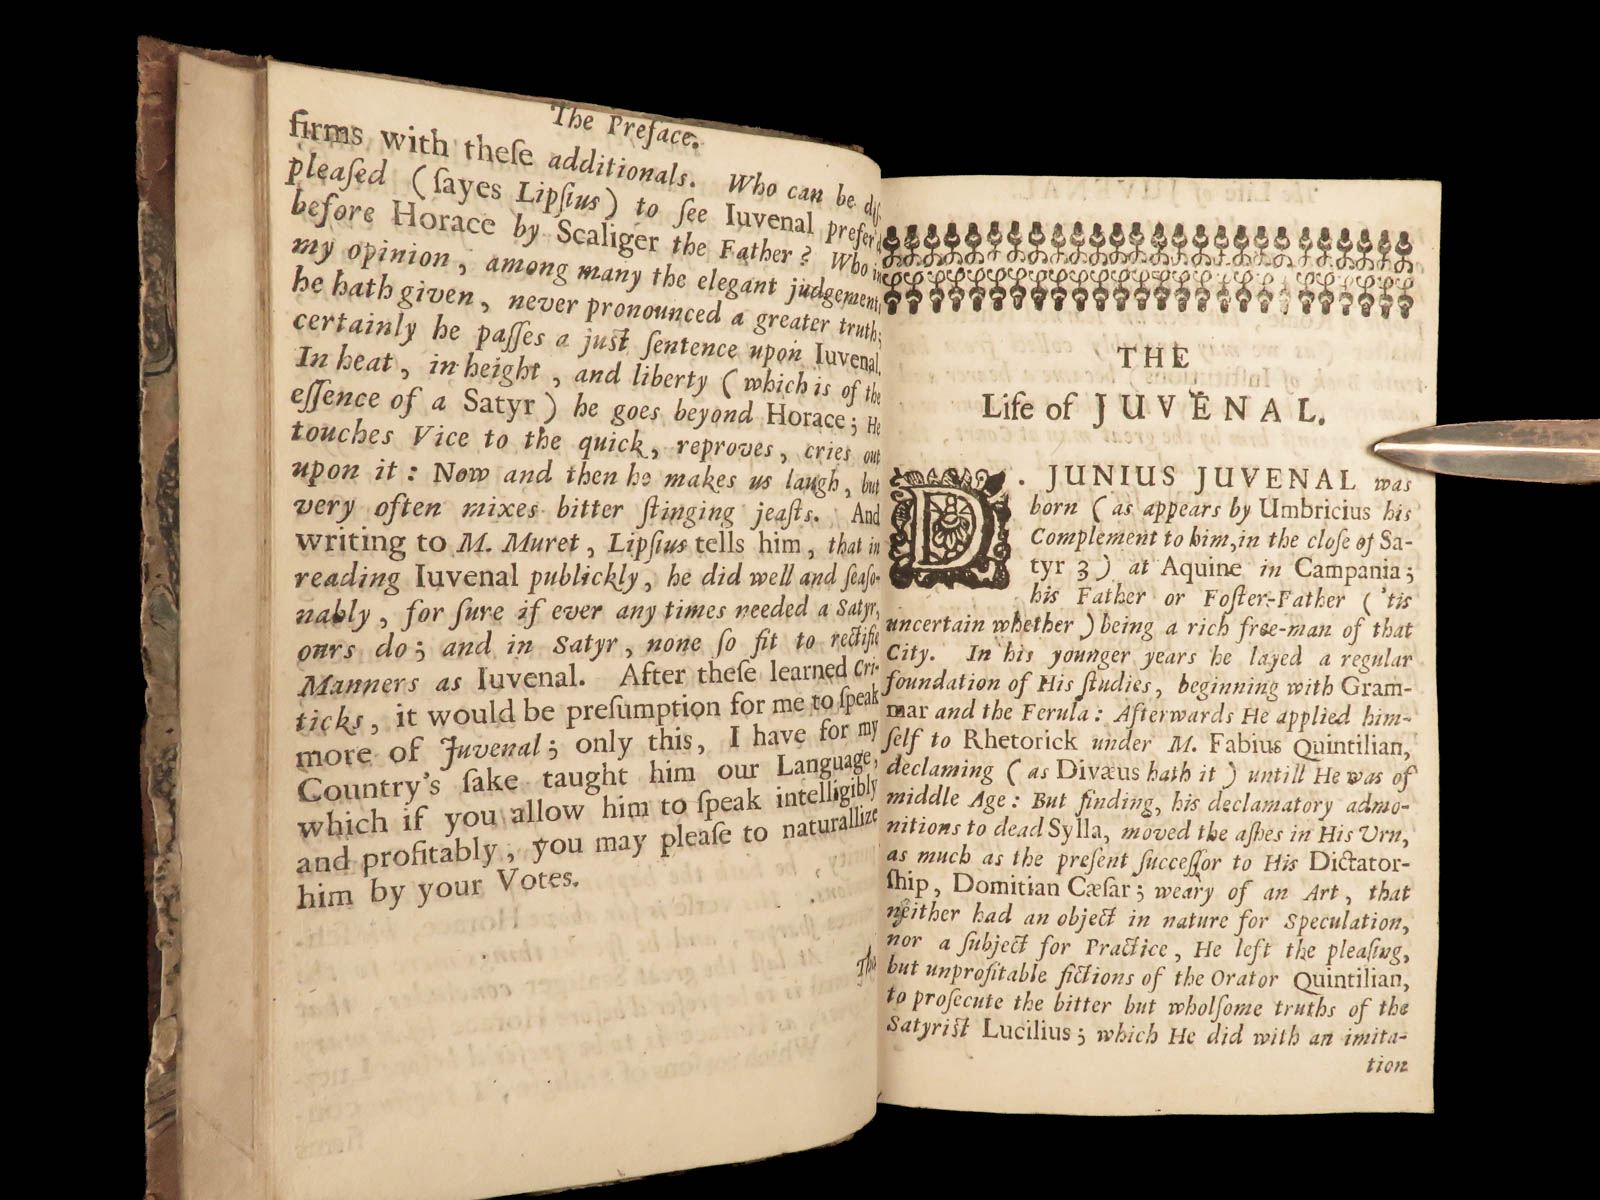 The Preface.
firms with theſe additionals. Who can be diſ-
pleaſed (ſayes Lipſius) to ſee Iuvenal prefer'd
before Horace by Scaliger the Father? Who in
my opinion, among many the elegant judgements
he hath given, never pronounced a greater truth;
certainly he paſſes a juſt ſentence upon Iuvenal.
In heat, in height, and liberty (which is of the
eſſence of a Satyr) he goes beyond Horace; He
touches Vice to the quick, reproves, cries out
upon it: Now and then he makes us laugh, but
very often mixes bitter ſtinging jeaſts. And
writing to M. Muret, Lipſius tells him, that in
reading Iuvenal publickly, he did well and ſeaſo-
nably, for ſure if ever any times needed a Satyr,
ours do; and in Satyr, none ſo fit to rectifie
Manners as Iuvenal. After theſe learned Cri-
ticks, it would be preſumption for me to ſpeak
more of Juvenal; only this, I have for my
Country's ſake taught him our Language,
which if you allow him to ſpeak intelligibly
and profitably, you may pleaſe to naturallize
him by your Votes.
The
THE
Life of JUVENAL.
D. JUNIUS JUVENAL was
born (as appears by Umbricius his
Complement to him, in the cloſe of Sa-
tyr 3) at Aquine in Campania;
his Father or Foſter-Father ('tis
uncertain whether) being a rich free-man of that
City. In his younger years he layed a regular
foundation of His ſtudies, beginning with Gram-
mar and the Ferula: Afterwards He applied him-
ſelf to Rhetorick under M. Fabius Quintilian,
declaming (as Divæus hath it) untill He was of
middle Age: But finding, his declamatory admo-
nitions to dead Sylla, moved the aſhes in His Urn,
as much as the preſent ſucceſſor to His Dictator-
ſhip, Domitian Cæſar; weary of an Art, that
neither had an object in nature for Speculation,
nor a ſubject for Practice, He left the pleaſing,
but unprofitable fictions of the Orator Quintilian,
to proſecute the bitter but wholſome truths of the
Satyriſt Lucilius; which He did with an imita-
tion